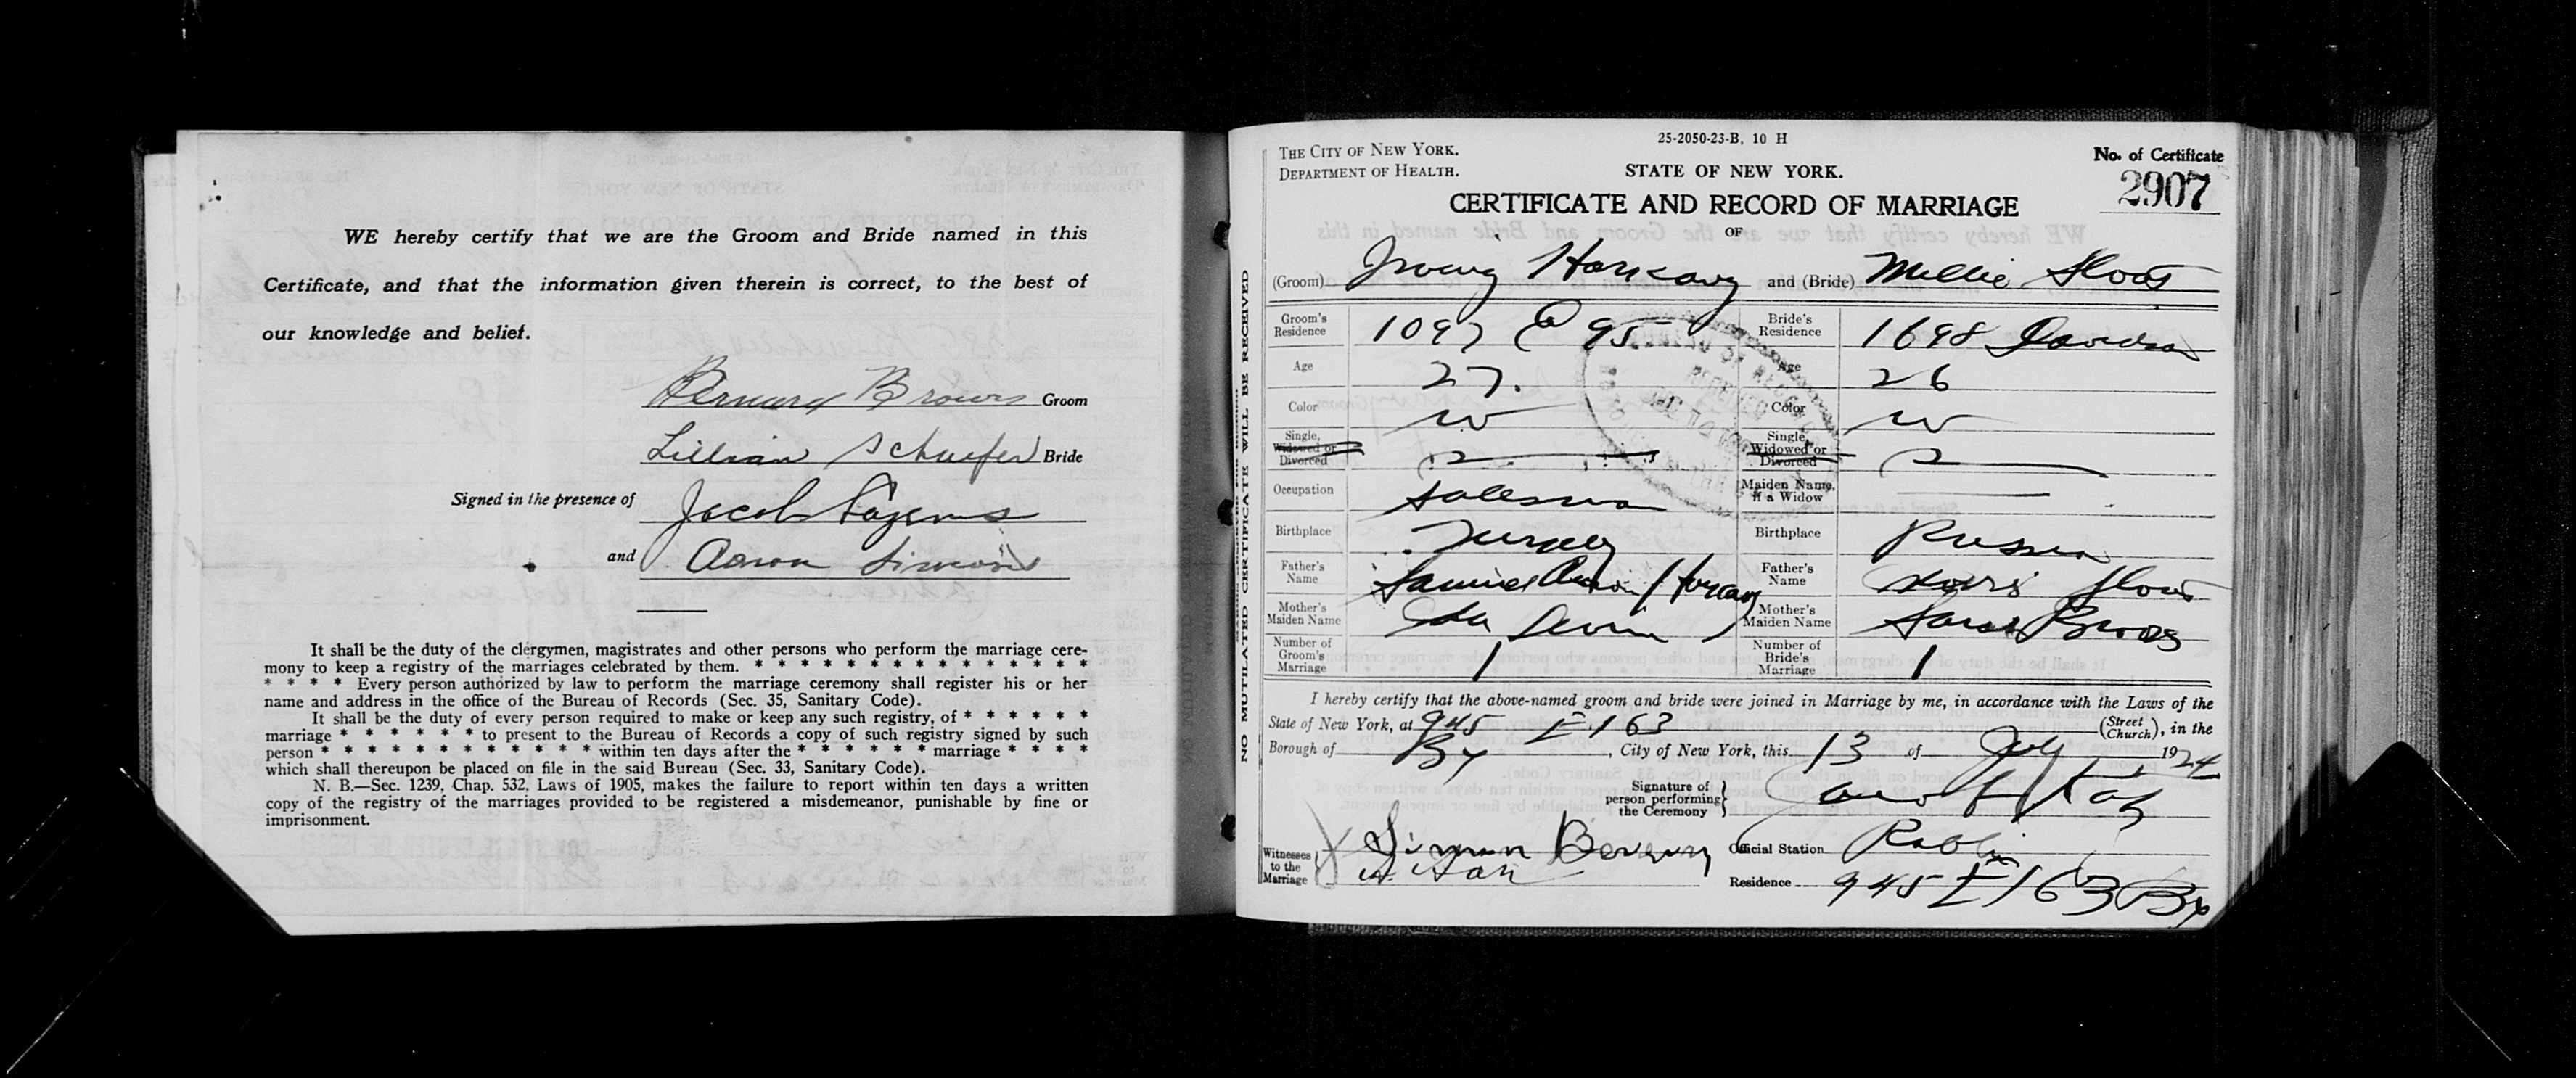 WE hereby certify that we are the Groom and Bride named in this
Certificate, and that the information given therein is correct, to the best of
our knowledge and belief.
Bernard Brown Groom
Lillian Schaefer Bride
Signed in the presence of Jacob
and Aaron Simon
It shall be the duty of the clergymen, magistrates and other persons who perform the marriage cere-
mony to keep a registry of the marriages celebrated by them. * * * * * * * * * * * * *
* * * * Every person authorized by law to perform the marriage ceremony shall register his or her
name and address in the office of the Bureau of Records (Sec. 35, Sanitary Code).
It shall be the duty of every person required to make or keep any such registry, of * * * * * *
marriage * * * * * * to present to the Bureau of Records a copy of such registry signed by such
person * * * * * * * * * * * * within ten days after the * * * * * * marriage * * * *
which shall thereupon be placed on file in the said Bureau (Sec. 33, Sanitary Code).
N. B.—Sec. 1239, Chap. 532, Laws of 1905, makes the failure to report within ten days a written
copy of the registry of the marriages provided to be registered a misdemeanor, punishable by fine or
imprisonment.
NO MUTILATED CERTIFICATE WILL BE RECEIVED
25-2050-23-B, 10 H
THE CITY OF NEW YORK.
DEPARTMENT OF HEALTH.
STATE OF NEW YORK.
No. of Certificate
2907
CERTIFICATE AND RECORD OF MARRIAGE
OF
(Groom) Irving Harkavy and (Bride) Millie Slots
Groom's Residence 1097 E 95 Bride's Residence 1698 Davidson
Age 27. Age 26
Color W Color W
Single, Widowed or Divorced S Single, Widowed or Divorced S
Occupation Salesman Maiden Name, if a Widow
Birthplace Turkey Birthplace Russia
Father's Name Samuel Harkavy Father's Name Slots
Mother's Maiden Name Ida Mother's Maiden Name Sarah
Number of Groom's Marriage 1 Number of Bride's Marriage 1
I hereby certify that the above-named groom and bride were joined in Marriage by me, in accordance with the Laws of the
State of New York, at 945 E 163 (Street Church), in the
Borough of Bx, City of New York, this 13 of July 1924
Signature of person performing the Ceremony Jacob Katz
Witnesses to the Marriage Simon
Official Station Rabbi
Residence 945 E 163 Bx